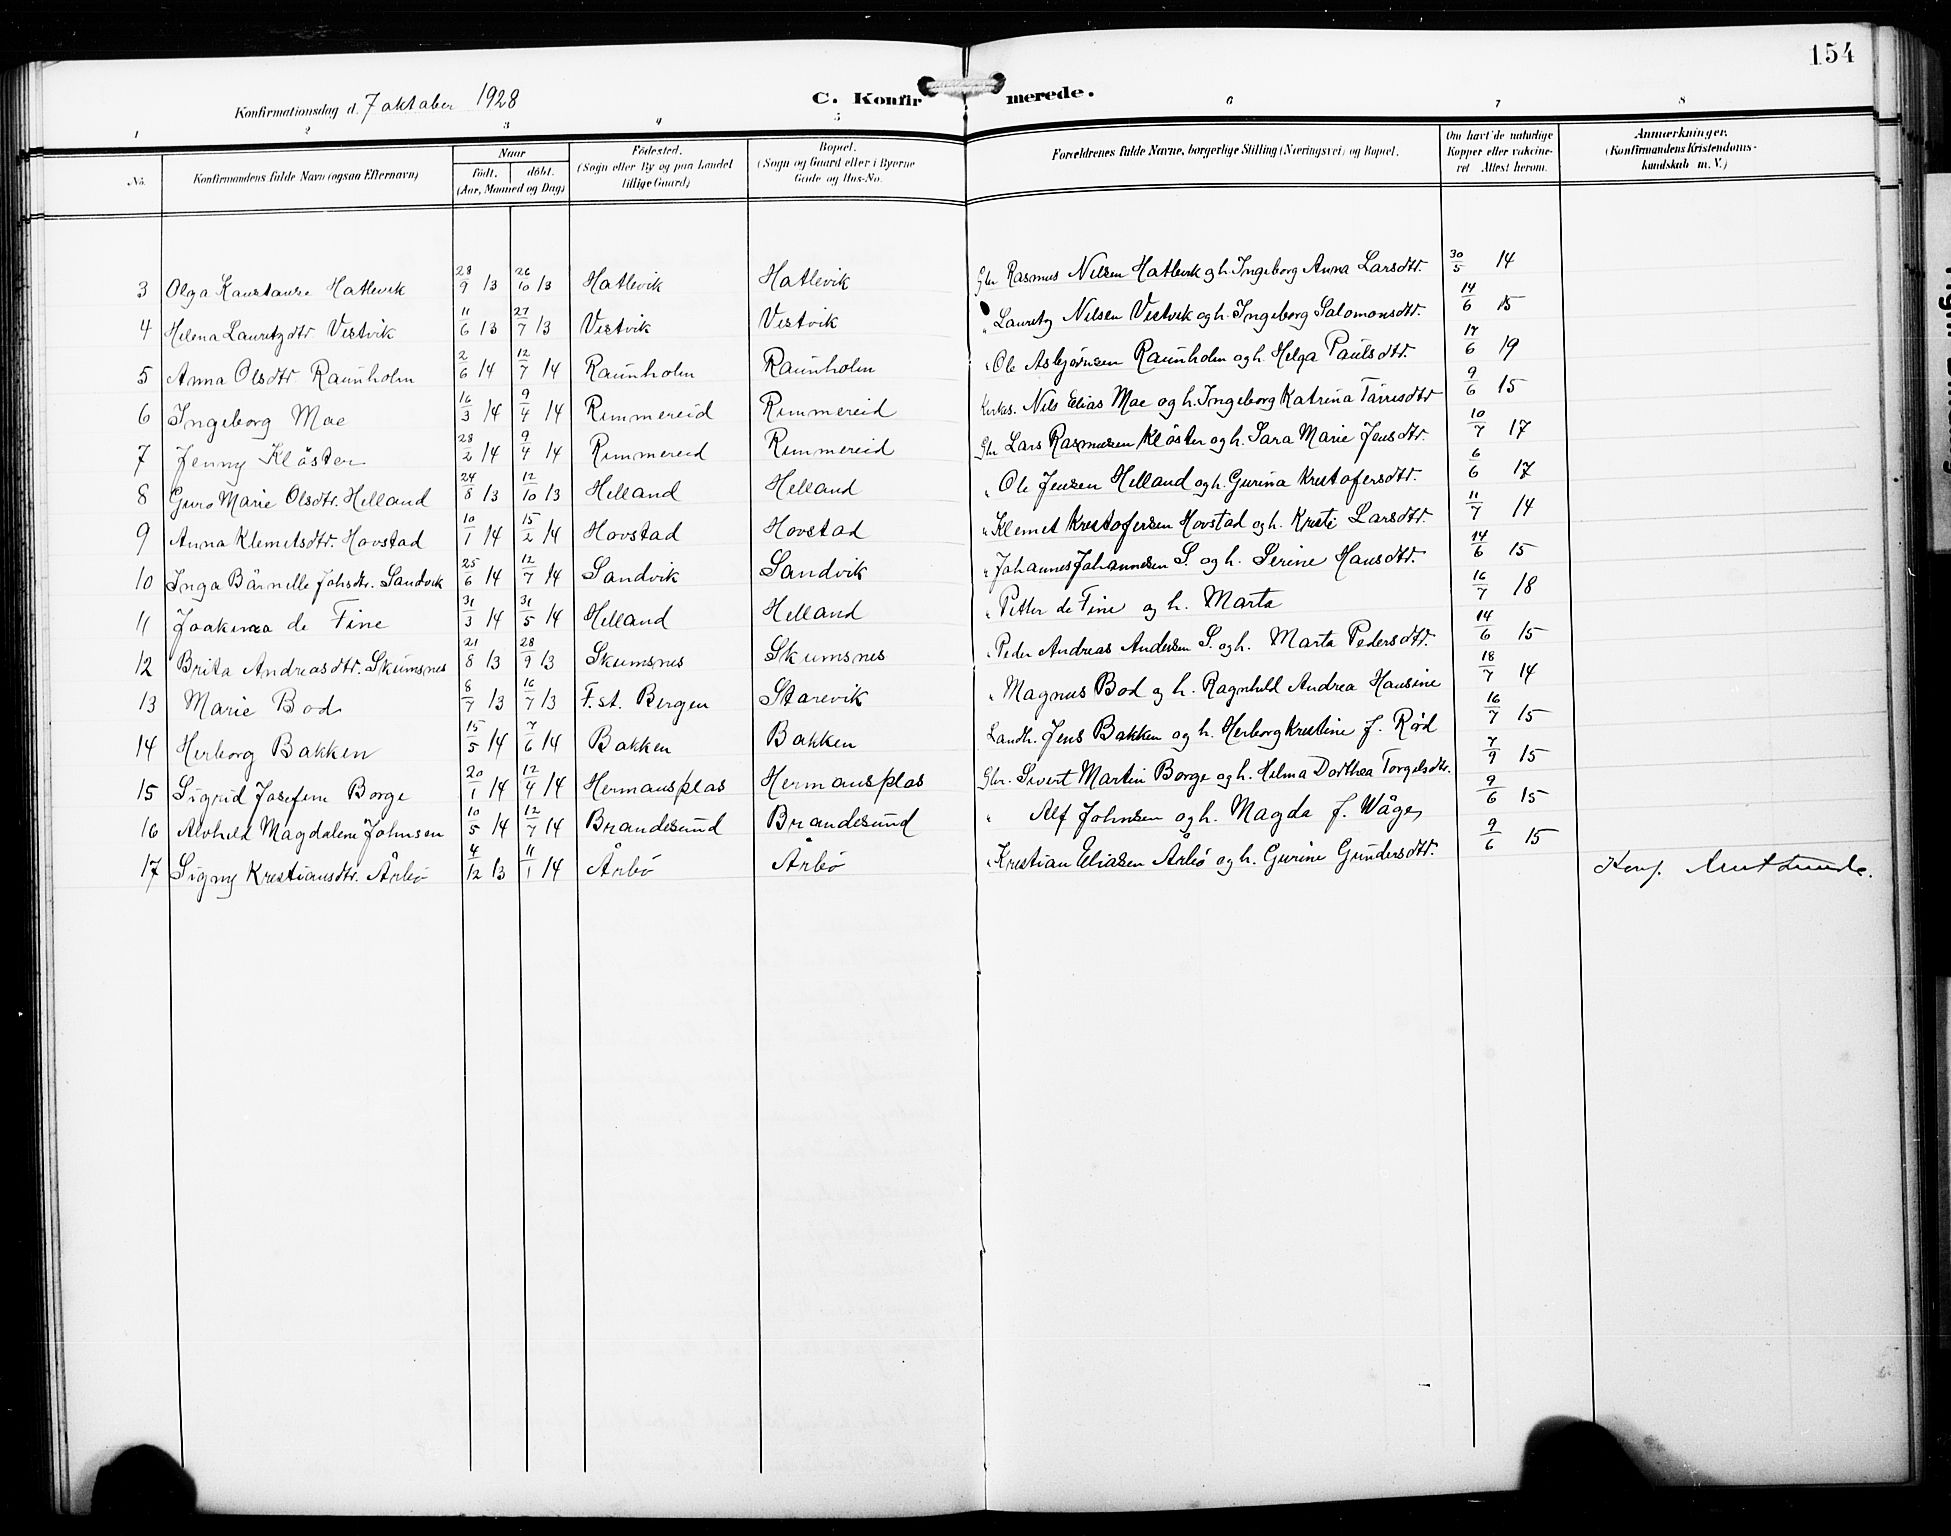 154
Konfirmationsdag d. 7 oktober 1928 C. Konfirmerede.
1 2 3 4 5 6 7 8
No. Konfirmandens fulde Navn (ogsaa Efternavn) Naar født. døbt. (Aar, Maaned og Dag) Fødested. (Sogn eller By og paa Landet tillige Gaard) Bopæl. (Sogn og Gaard eller i Byerne Gade og Hus-No. Forældrenes fulde Navne, borgerlige Stilling (Næringsvei) og Bopæl. Om havt de naturlige Kopper eller vakcineret Attest herom. Anmærkninger. (Konfirmandens Kristendomskundskab m. V.)
3 Olga Konstanse Hatlevik 28/9 13 26/10 13 Hatlevik Hatlevik Gbr Rasmus Nilsen Hatlevik og h. Ingeborg Anna Larsdtr. 30/5 14
4 Helena Lauritzdtr Vestvik 11/6 13 27/7 13 Vestvik Vestvik " Lauritz Nilsen Vestvik og h. Ingeborg Salomonsdtr. 14/6 15
5 Anna Olsdtr Raunholm 2/6 14 12/7 14 Raunholm Raunholm " Ole Asbjørnsen Raunholm og h. Helga Paulsdtr. 17/6 19
6 Ingeborg Moe 16/3 14 9/4 14 Rimmereid Rimmereid Kirkes. Nils Elias Moe og h. Ingeborg Katrina Tørrisdtr 9/6 15
7 Jenny Kløster 28/2 14 9/4 14 Rimmereid Rimmereid Gbr Lars Rasmusen Kløster og h. Sara Marie Jensdtr. 10/7 17
8 Guro Marie Olsdtr. Helland 24/8 13 12/10 13 Helland Helland " Ole Jensen Helland og h. Gurina Kristofersdtr. 6/6 17
9 Anna Klemetsdtr. Hovstad 10/1 14 15/2 14 Hovstad Hovstad " Klemet Kristofersen Hovstad og h. Kristi Larsdtr. 11/7 14
10 Inga Bärnelle Johsdtr. Sandvik 25/6 14 12/7 14 Sandvik Sandvik " Johannes Johannesen S. og h. Serine Hansdtr. 14/6 15
11 Joakima de Fine 31/3 14 31/5 14 Helland Helland " Petter de Fine og h. Marta 16/7 18
12 Brita Andreasdtr. Skumsnes 21/8 13 28/9 13 Skumsnes Skumsnes " Peder Andreas Andersen S. og h. Marta Pedersdtr. 14/6 15
13 Marie Bod 8/7 13 16/7 13 F. st. Bergen Starevik " Magnus Bod og h. Ragnhild Andrea Hansine 18/7 14
14 Herborg Bakken 15/5 14 7/6 14 Bakken Bakken Landh. Jens Bakken og h. Herborg Kristine f. Rød 16/7 15
15 Sigrid Josefine Borge 20/1 14 12/4 14 Hermansplas Hermansplas Gbr. Sivert Martin Borge og h. Hilma Dorthea Torgelsdtr. 7/9 15
16 Alvhild Magdalene Johnsen 10/5 14 12/7 14 Brandesund Brandesund " Alf Johnsen og h. Magda f. Våge 9/6 15
17 Signy Kristiansdtr. Årbø 4/12 13 11/1 14 Årbø Årbø " Kristian Eliasen Årbø og h. Gurine Gundersdtr. 9/6 15
Konf.